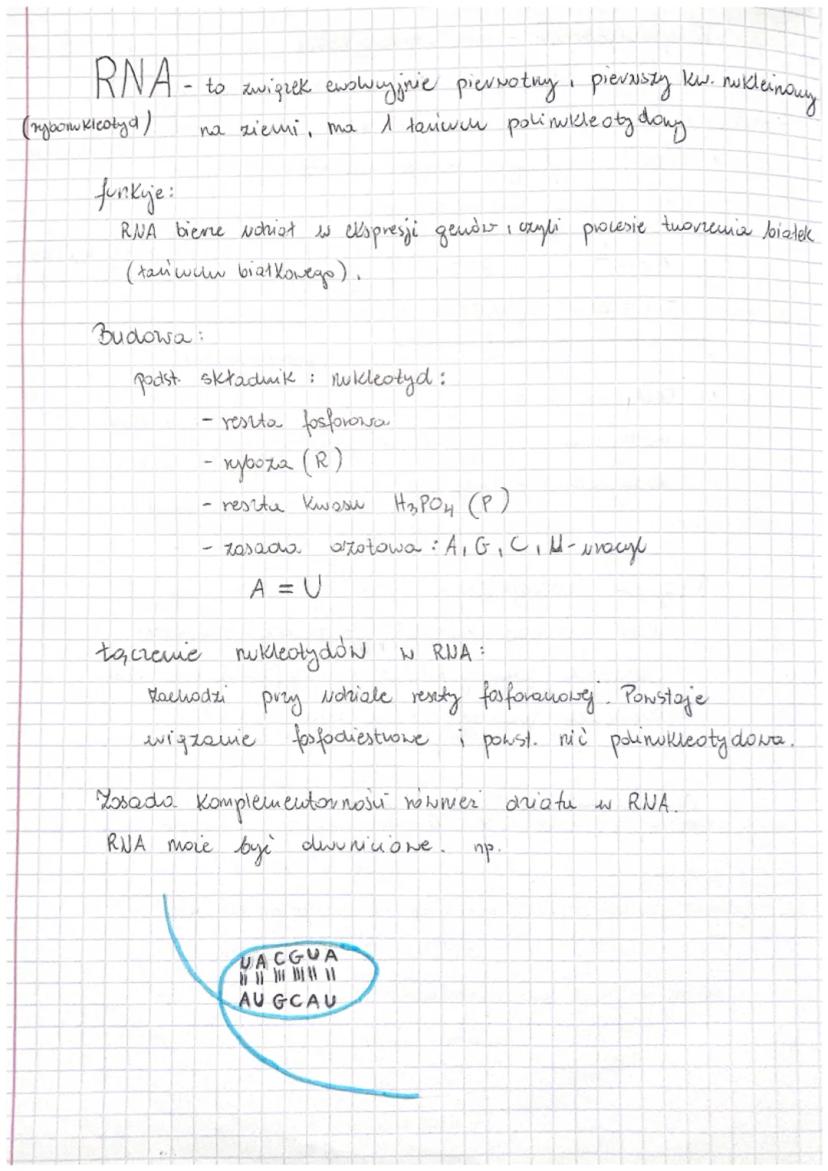 RNA - to związek ewolucyjnie pierwotny, pierwszy kw. nukleinowy
(rybonukleotyd) na ziemi, ma 1 łańcuch polinukleotydowy
funkcje:
RNA bierze udział w ekspresji genów, czyli procesie tworzenia białek
(łańcuchu białkowego).
Budowa:
podst. składnik : nukleotyd:
- reszta fosforowa
- ryboza (R)
- reszta kwasu H3PO4 (P)
- zasada azotowa : A, G, C, U - uracyl
A = U
Łączenie nukleotydów w RNA:
Zachodzi przy udziale reszty fosforanowej. Powstaje
wiązanie fosfodiestrowe i powst. nić polinukleotydowa.
Zasada komplementarności również działa w RNA.
RNA może być dwuniciowe. np.
UACGUA
AUGCAU